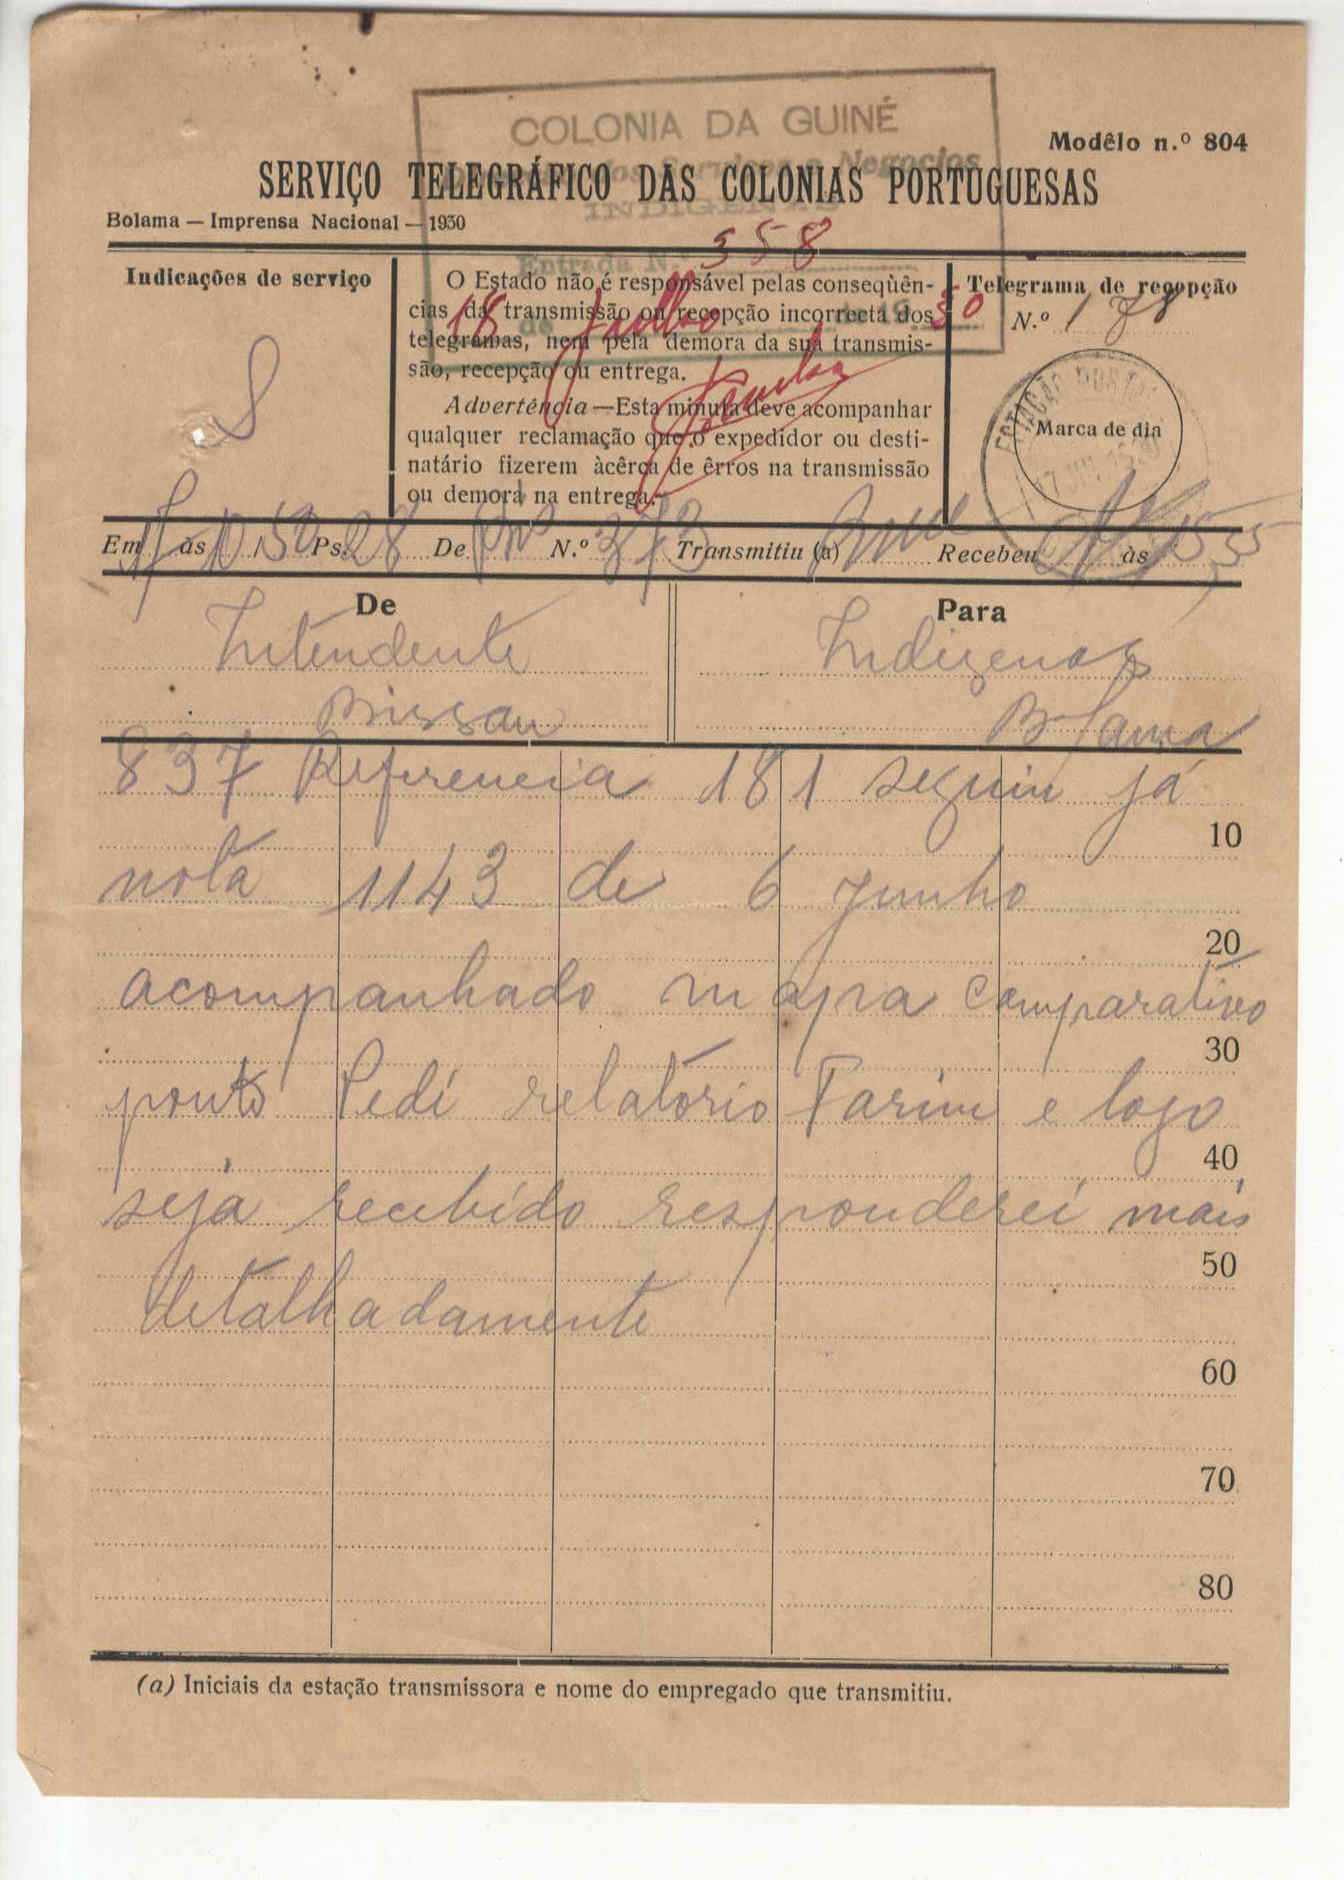 COLONIA DA GUINÉ
Modêlo n.º 804
dos Serviços e Negocios
SERVIÇO TELEGRÁFICO DAS COLONIAS PORTUGUESAS
INDIGENAS
Bolama — Imprensa Nacional — 1930
Entrada N.º 558
18 de Julho de 1930
Indicações de serviço
S
O Estado não é responsável pelas conseqùên-
cias da transmissão ou recepção incorrecta dos
telegramas, nem pela demora da sua transmis-
são, recepção ou entrega.
Advertência — Esta minuta deve acompanhar
qualquer reclamação que o expedidor ou desti-
natário fizerem àcêrca de êrros na transmissão
ou demora na entrega.
Telegrama de recepção
N.º 178
ESTAÇÃO POSTAL
Marca de dia
17 JUL
Em 17 às 1050 Ps. 28 De N.º 373 Transmitiu (a) Recebeu às 1555
De
Para
Intendente
Indigenas
Bissau
Bolama
837 Referencia 181 seguiu já
10
nota 1143 de 6 junho
20
acompanhado mapa comparativo
30
ponto Pedi relatório Farim e logo
40
seja recebido responderei mais
50
detalhadamente
60
70
80
(a) Iniciais da estação transmissora e nome do empregado que transmitiu.